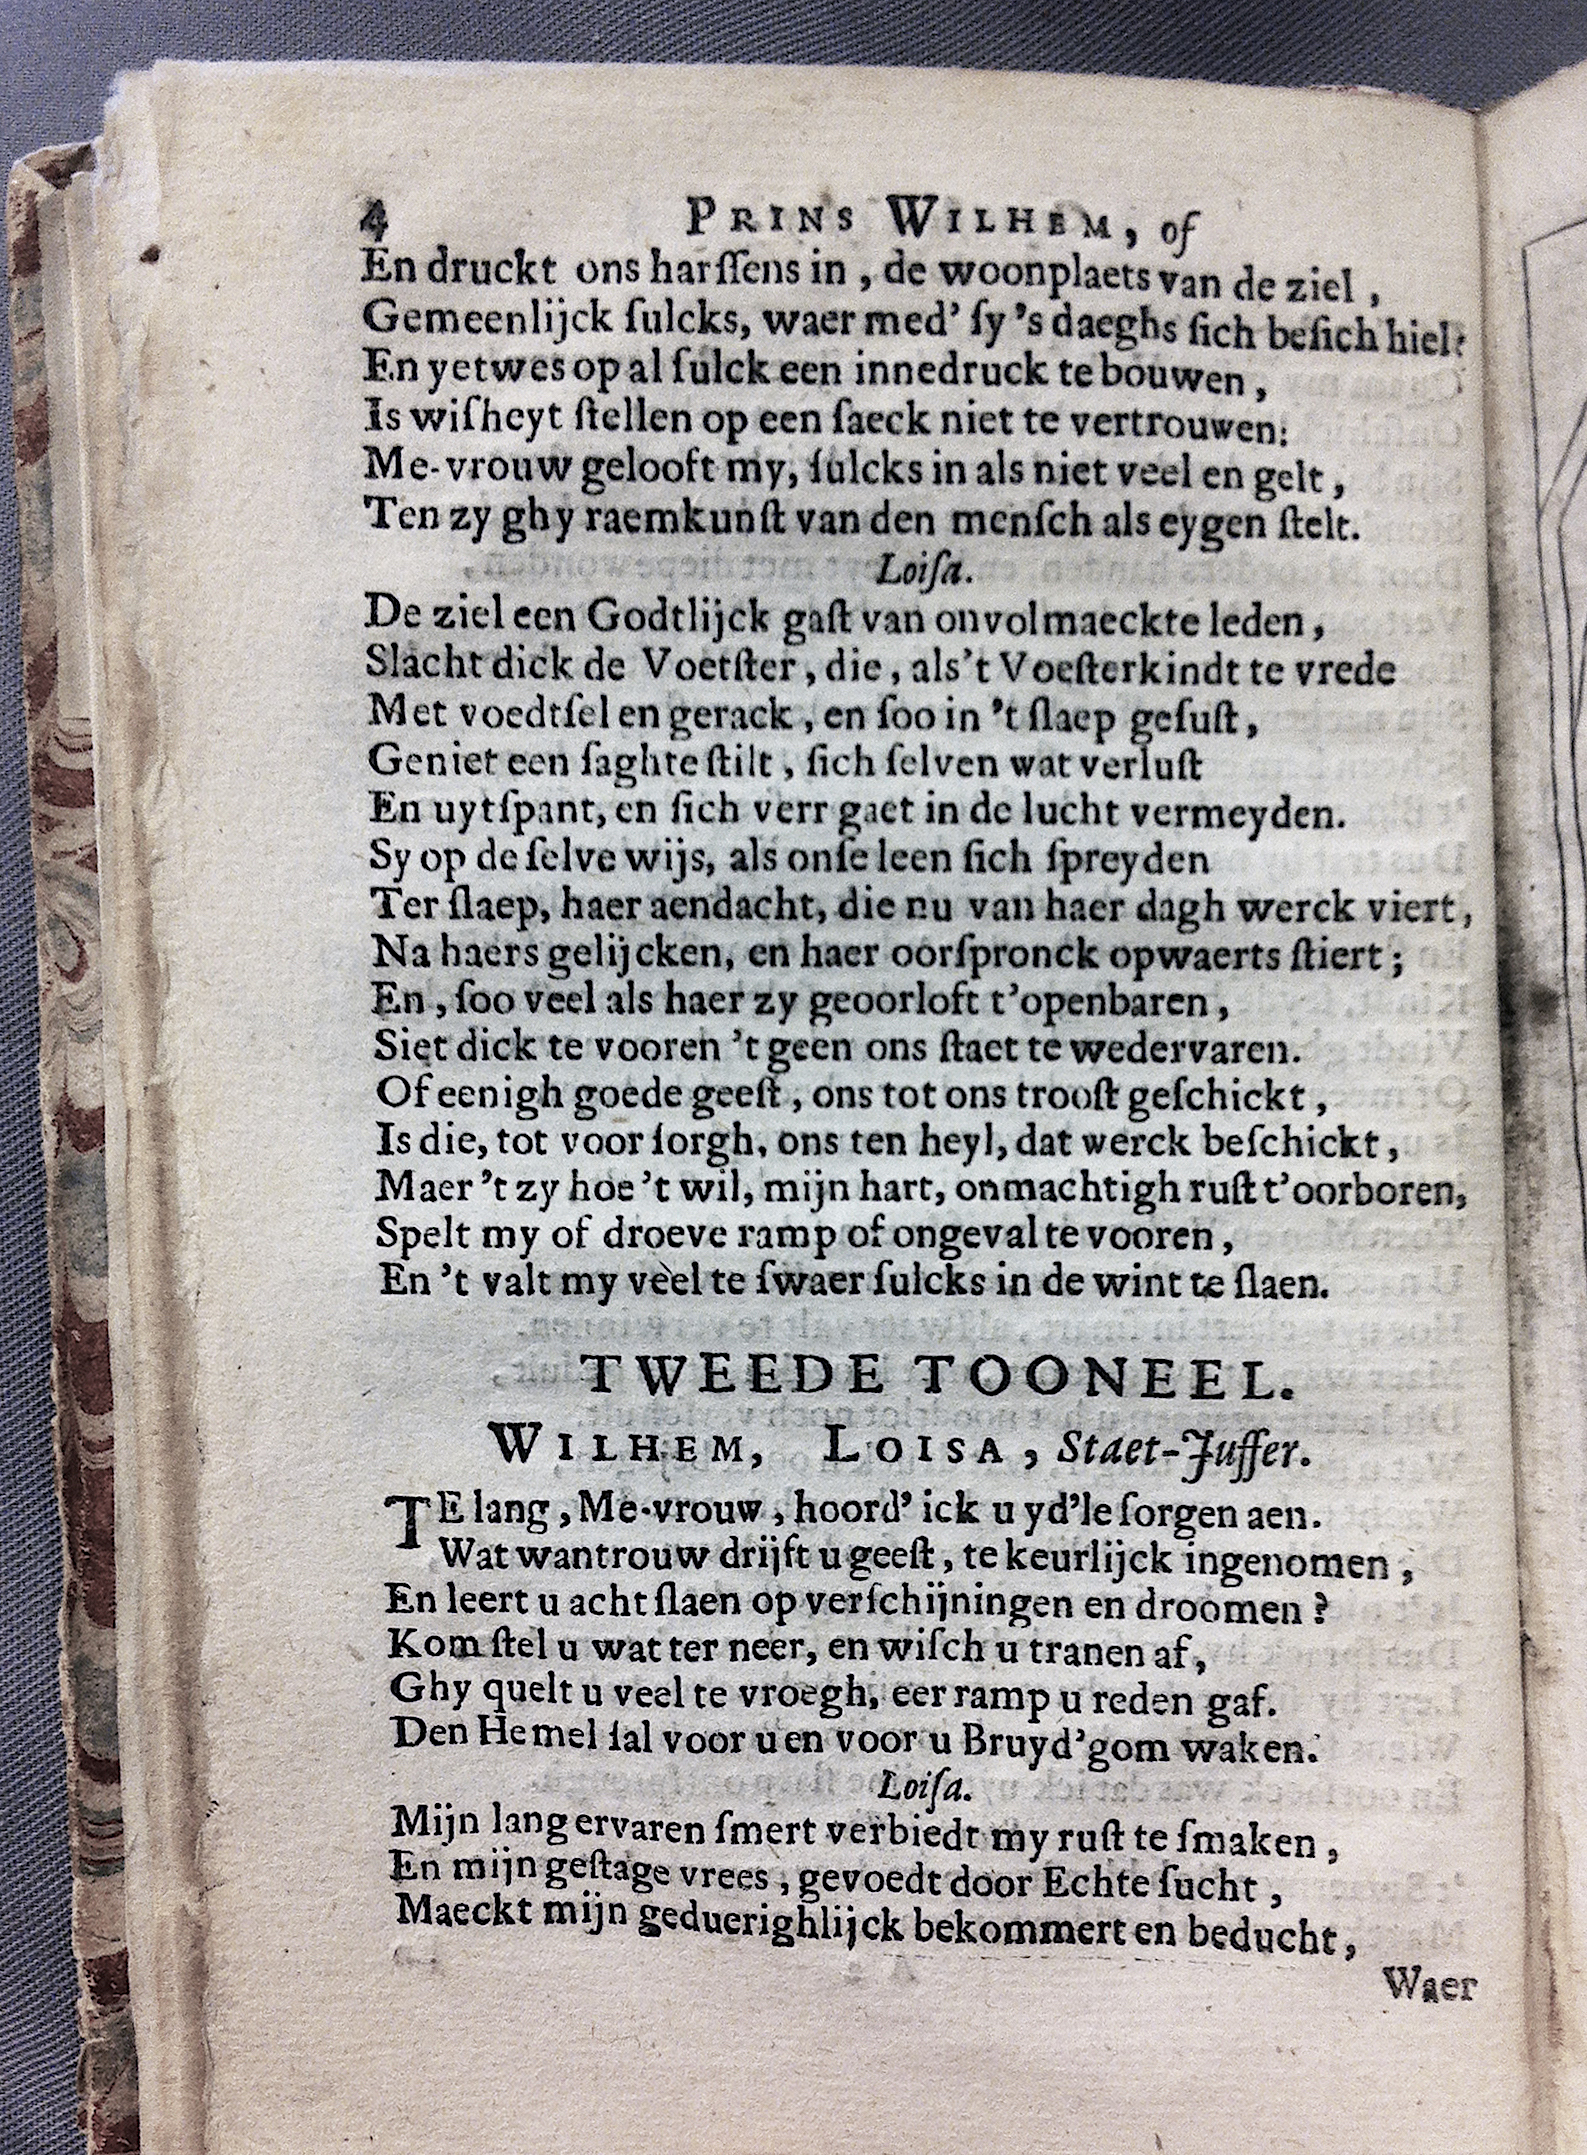 4 PRINS WILHEM, of
En druckt ons harſſens in, de woonplaets van de ziel,
Gemeenlijck ſulcks, waer med' ſy 's daeghs ſich beſich hiel:
En yetwes op al ſulck een innedruck te bouwen,
Is wiſheyt ſtellen op een ſaeck niet te vertrouwen:
Me-vrouw gelooft my, ſulcks in als niet veel en gelt,
Ten zy ghy raemkunſt van den menſch als eygen ſtelt.
Loiſa.
De ziel een Godtlijck gaſt van onvolmaeckte leden,
Slacht dick de Voetſter, die, als't Voeſterkindt te vrede
Met voedtſel en gerack, en ſoo in 't ſlaep geſuſt,
Geniet een ſaghte ſtilt, ſich ſelven wat verluſt
En uytſpant, en ſich verr gaet in de lucht vermeyden.
Sy op de ſelve wijs, als onſe leen ſich ſpreyden
Ter ſlaep, haer aendacht, die nu van haer dagh werck viert,
Na haers gelijcken, en haer oorſpronck opwaerts ſtiert;
En, ſoo veel als haer zy geoorloft t'openbaren,
Siet dick te vooren 't geen ons ſtaet te wedervaren.
Of eenigh goede geeſt, ons tot ons trooſt geſchickt,
Is die, tot voor ſorgh, ons ten heyl, dat werck beſchickt,
Maer 't zy hoe 't wil, mijn hart, onmachtigh ruſt t'oorboren,
Spelt my of droeve ramp of ongeval te vooren,
En 't valt my veel te ſwaer ſulcks in de wint te ſlaen.
TWEEDE TOONEEL.
WILHEM, LOISA, Staet-Juffer.
TE lang, Me-vrouw, hoord' ick u yd'le ſorgen aen.
Wat wantrouw drijft u geeſt, te keurlijck ingenomen,
En leert u acht ſlaen op verſchijningen en droomen?
Kom ſtel u wat ter neer, en wiſch u tranen af,
Ghy quelt u veel te vroegh, eer ramp u reden gaf.
Den Hemel ſal voor u en voor u Bruyd'gom waken.
Loiſa.
Mijn lang ervaren ſmert verbiedt my ruſt te ſmaken,
En mijn geſtage vrees, gevoedt door Echte ſucht,
Maeckt mijn geduerighlijck bekommert en beducht,
Waer